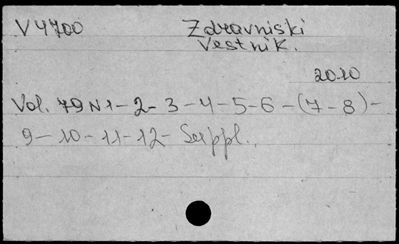 V 4700 Zdravniski
Vestnik.
2010
Vol. 79 N1-2-3-4-5-6-(7-8)-
9-10-11-12-Suppl.